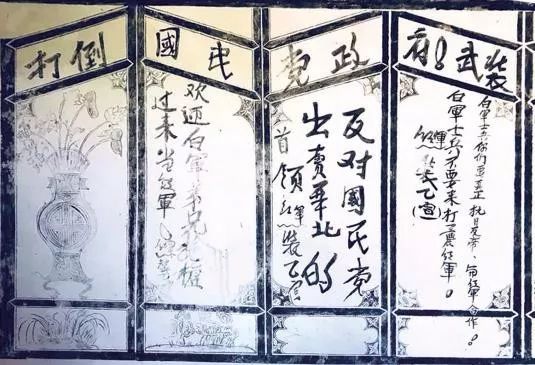 打倒國民党政府!武裝
欢迎白軍弟兄拖槍
过来当红軍
反对國民党
出卖華北的
首領 红軍 裝乙宣
白軍士兵你们要真正抗日 红軍合作!
白軍士兵不要来打工農红軍!
裝乙(宣)